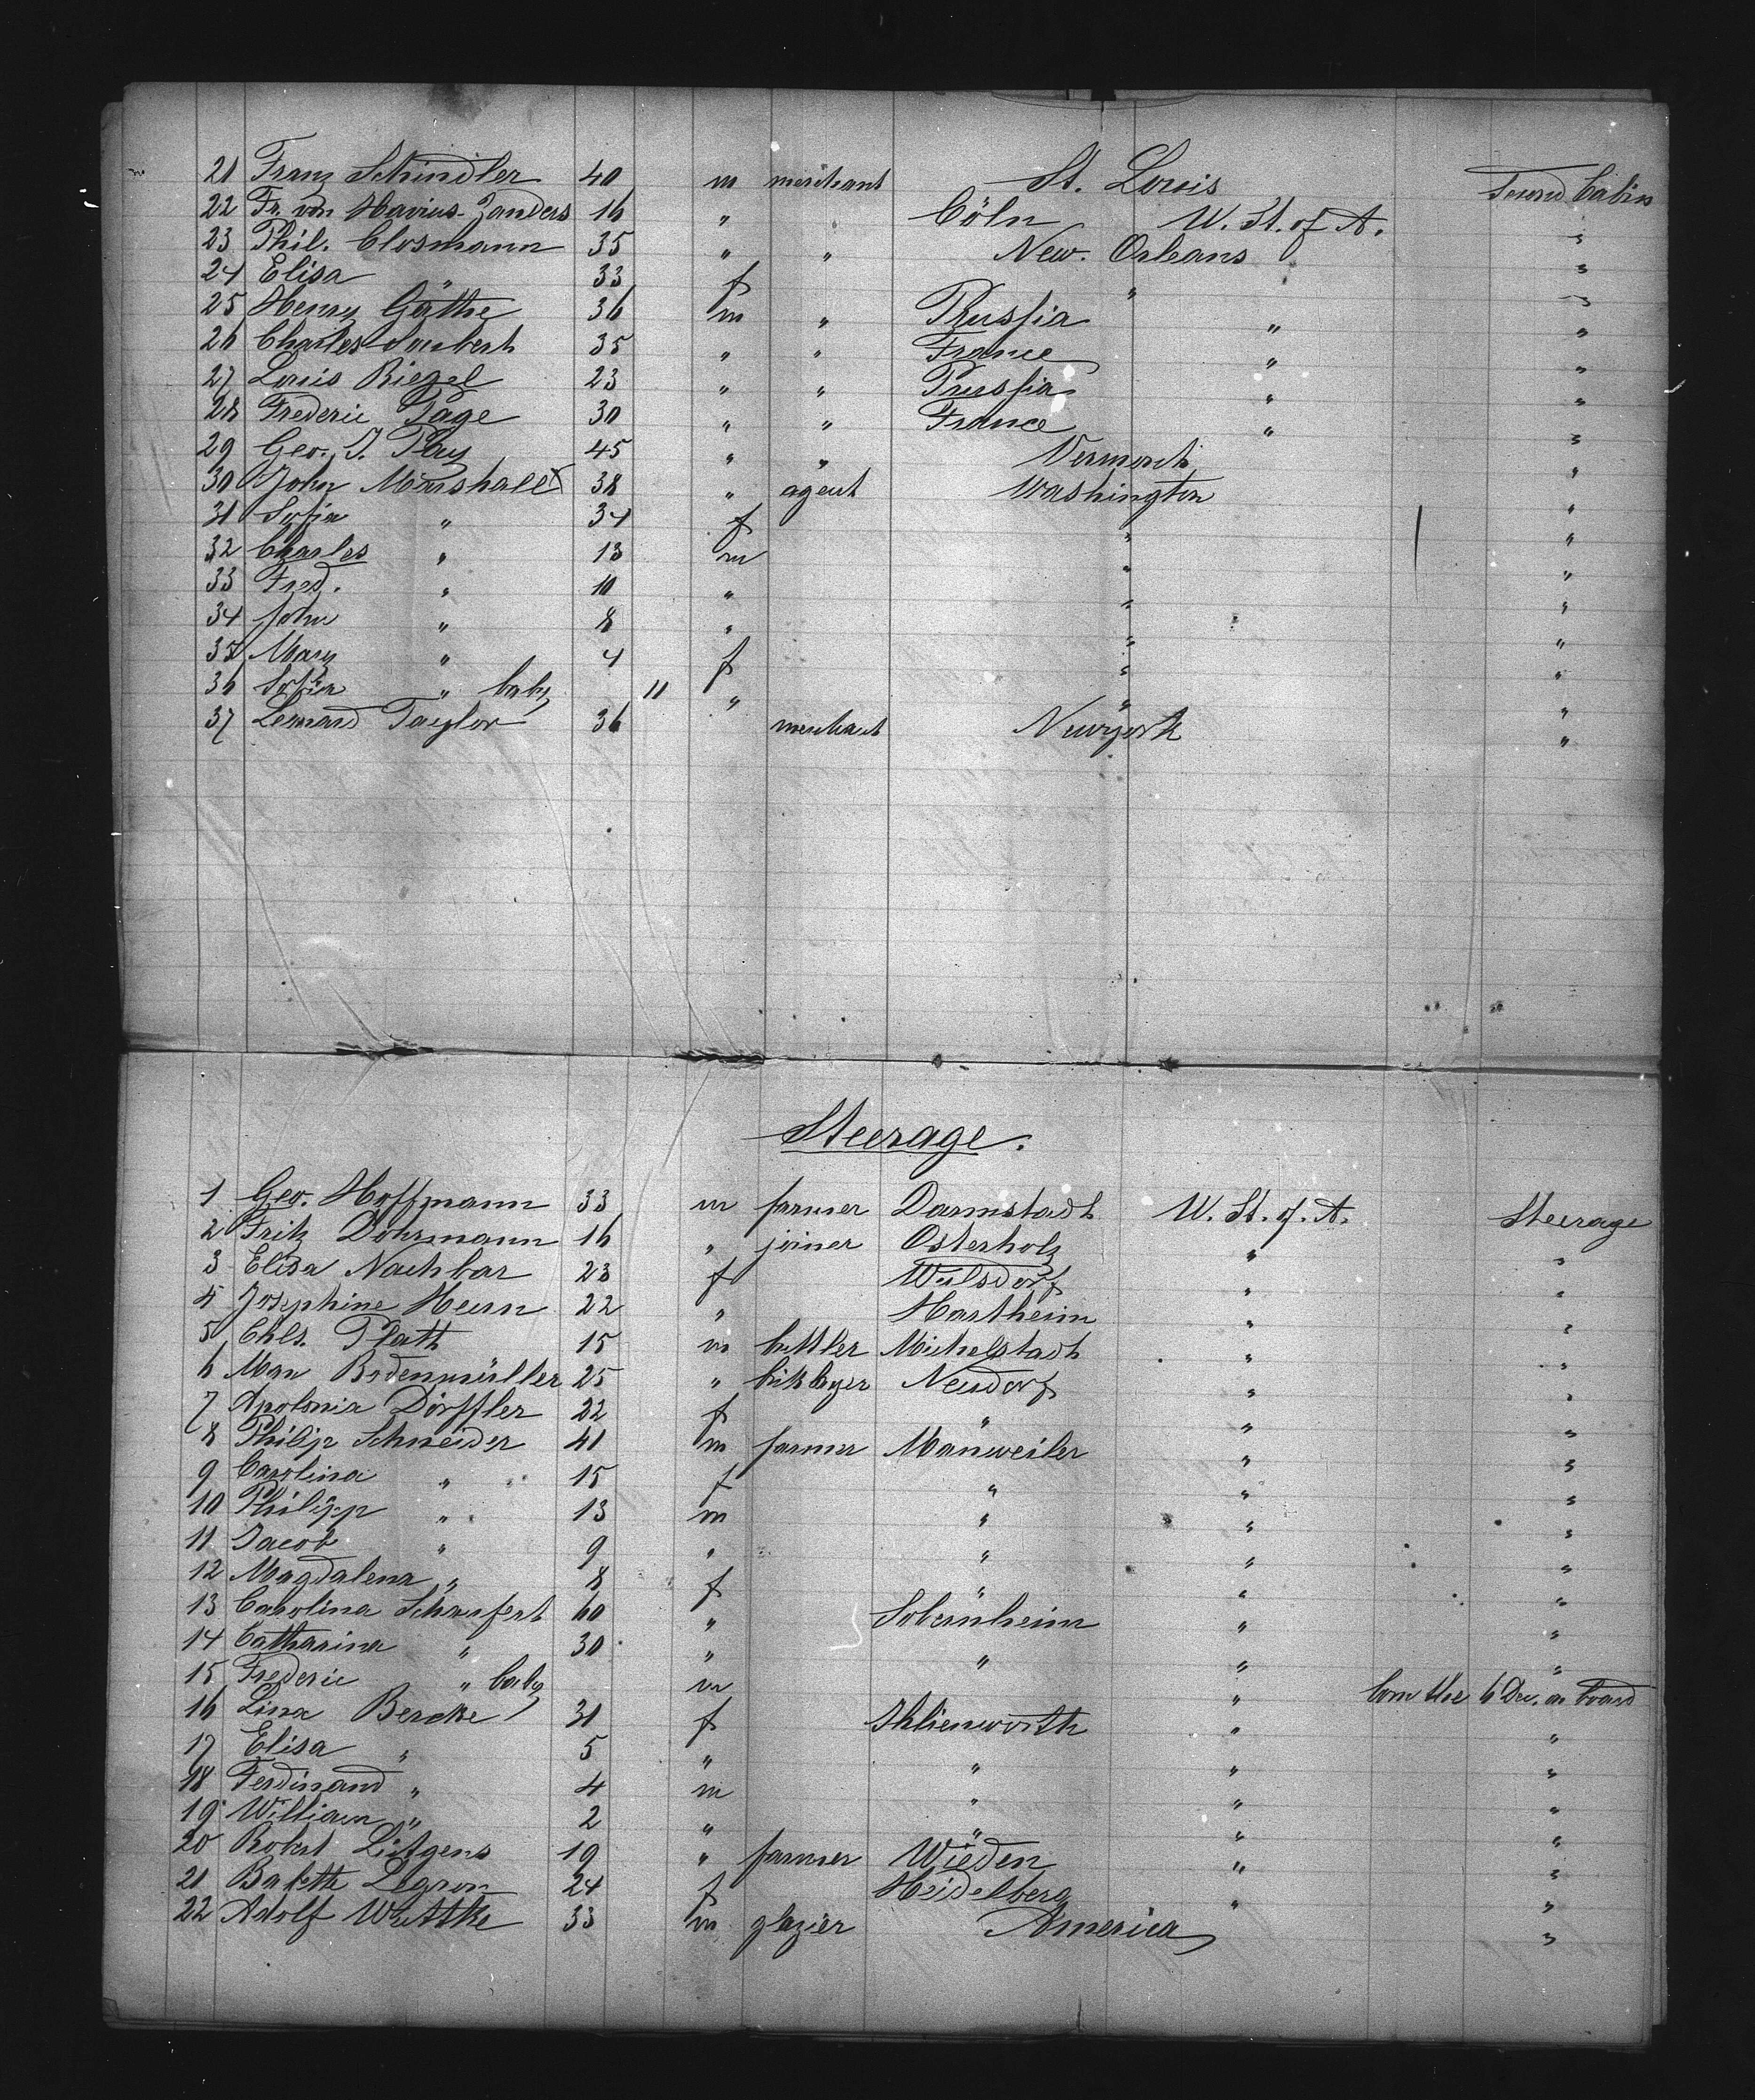 21 Franz Schindler 40 m merchant St. Louis Second Cabin
22 Fr. von Havius-Zanders 16 " Cöln W. St. of A. "
23 Phil. Closmann 35 " " New. Orleans "
24 Elisa " 33 f " "
25 Henry Gäthe 36 m " Prussia " "
26 Charles Soubert 35 " " France " "
27 Louis Riegel 23 " " Prussia " "
28 Frederic Page 30 " " France " "
29 Geo. J. 45 " " Vermont "
30 John Marshall 38 " agent Washington "
31 Sofia " 34 f " "
32 Charles " 13 m " "
33 Fred. " 10 " " "
34 John " 8 " " "
35 Mary " 4 f " "
36 Sofia " baby 11 " " "
37 Leonard Taylor 36 merchant Newyork "
Steerage.
1 Geo. Hoffmann 33 m farmer Darmstadt W. St. of. A. Steerage
2 Fritz Dohrmann 16 " joiner Osterholz " "
3 Elisa Nachbar 23 f Wulsdorf " "
4 Josephine Heun 22 " Hartheim " "
5 Chls. Plath 15 m buttler Michelstadt " "
6 Max Bodenmüller 25 " Neudorf " "
7 Apolonia Dörffler 22 f " " "
8 Philip Schneider 41 m farmer Manweiler " "
9 Carolina " 15 f " " "
10 Philipp " 13 m " " "
11 Jacob " 9 " " " "
12 Magdalena " 8 f " " "
13 Carolina Scharfert 60 " Sobernheim " "
14 Catharina " 30 " " " "
15 Frederic " baby m " born the 6 Dec. on board
16 Lina Bercke 31 f Ihlienworth " "
17 Elisa " 5 " " " "
18 Ferdinand " 4 m " " "
19 William " 2 " " " "
20 Robert Lütgens 19 " farmer Wieden " "
21 Babette Legron 24 f Heidelberg " "
22 Adolf Wuttke 33 m glazier America "